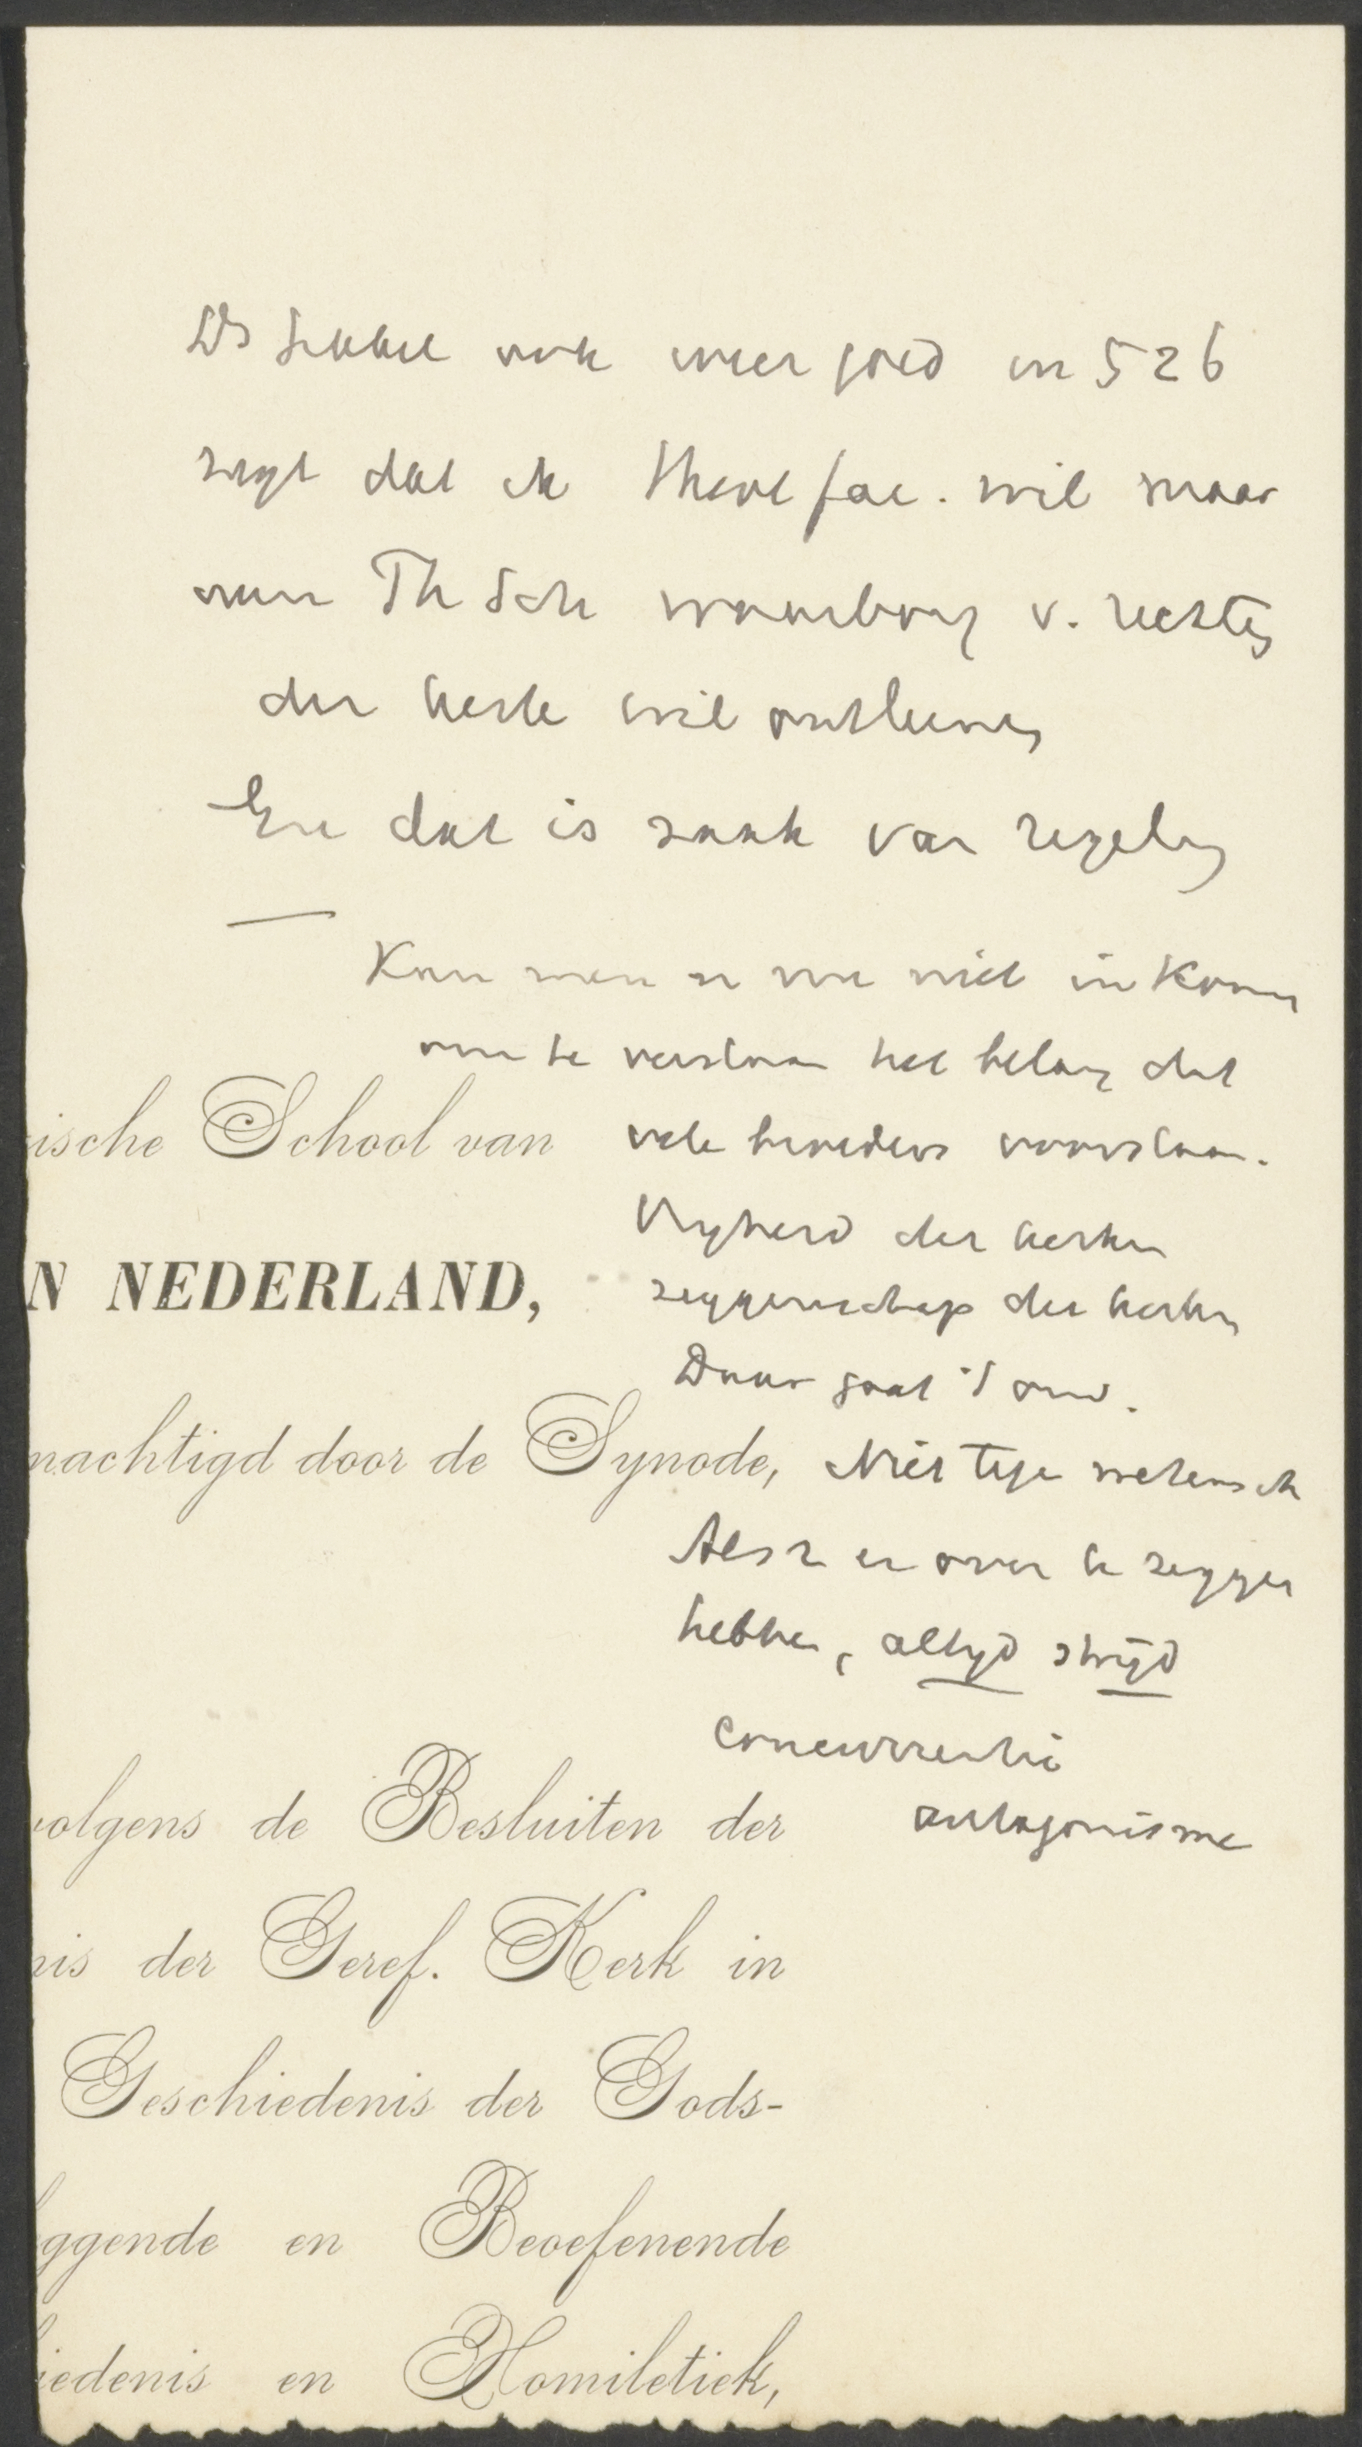 Ds Sikkel ook weer goed in 526
zegt dat ik theol fac. wil maar
aan Th Sch waarborg v. rechten
der kerk wil ontleenen
En dat is zaak van regeling
Kan men er nu niet in komen
om te verstaan het belang dat
vele broeders voorstaan.
ische School van
Vrijheid der kerken
N NEDERLAND,
zeggenschap der kerken
Daar gaat 't om.
machtigd door de Synode, Niet tegen wetensch
Als z er over te zeggen
hebben, altijd strijd
concurrentie
volgens de Besluiten der antagonisme
nis der Geref. Kerk in
Geschiedenis der Gods-
ggende en Beoefenende
iedenis en Homiletiek,